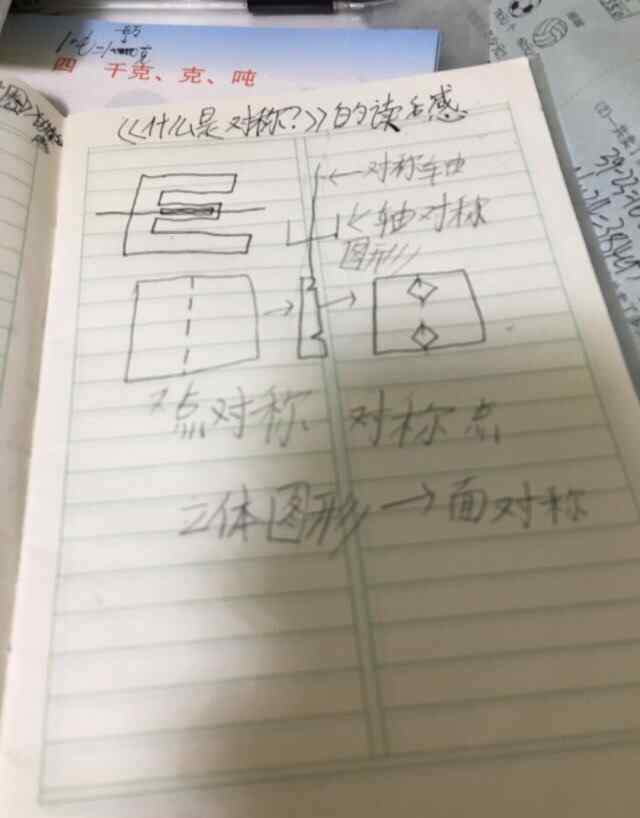 四 千克、克、吨
《什么是对称?》的读后感
←对称轴
<轴对称
图形
点对称、对称点
立体图形→面对称